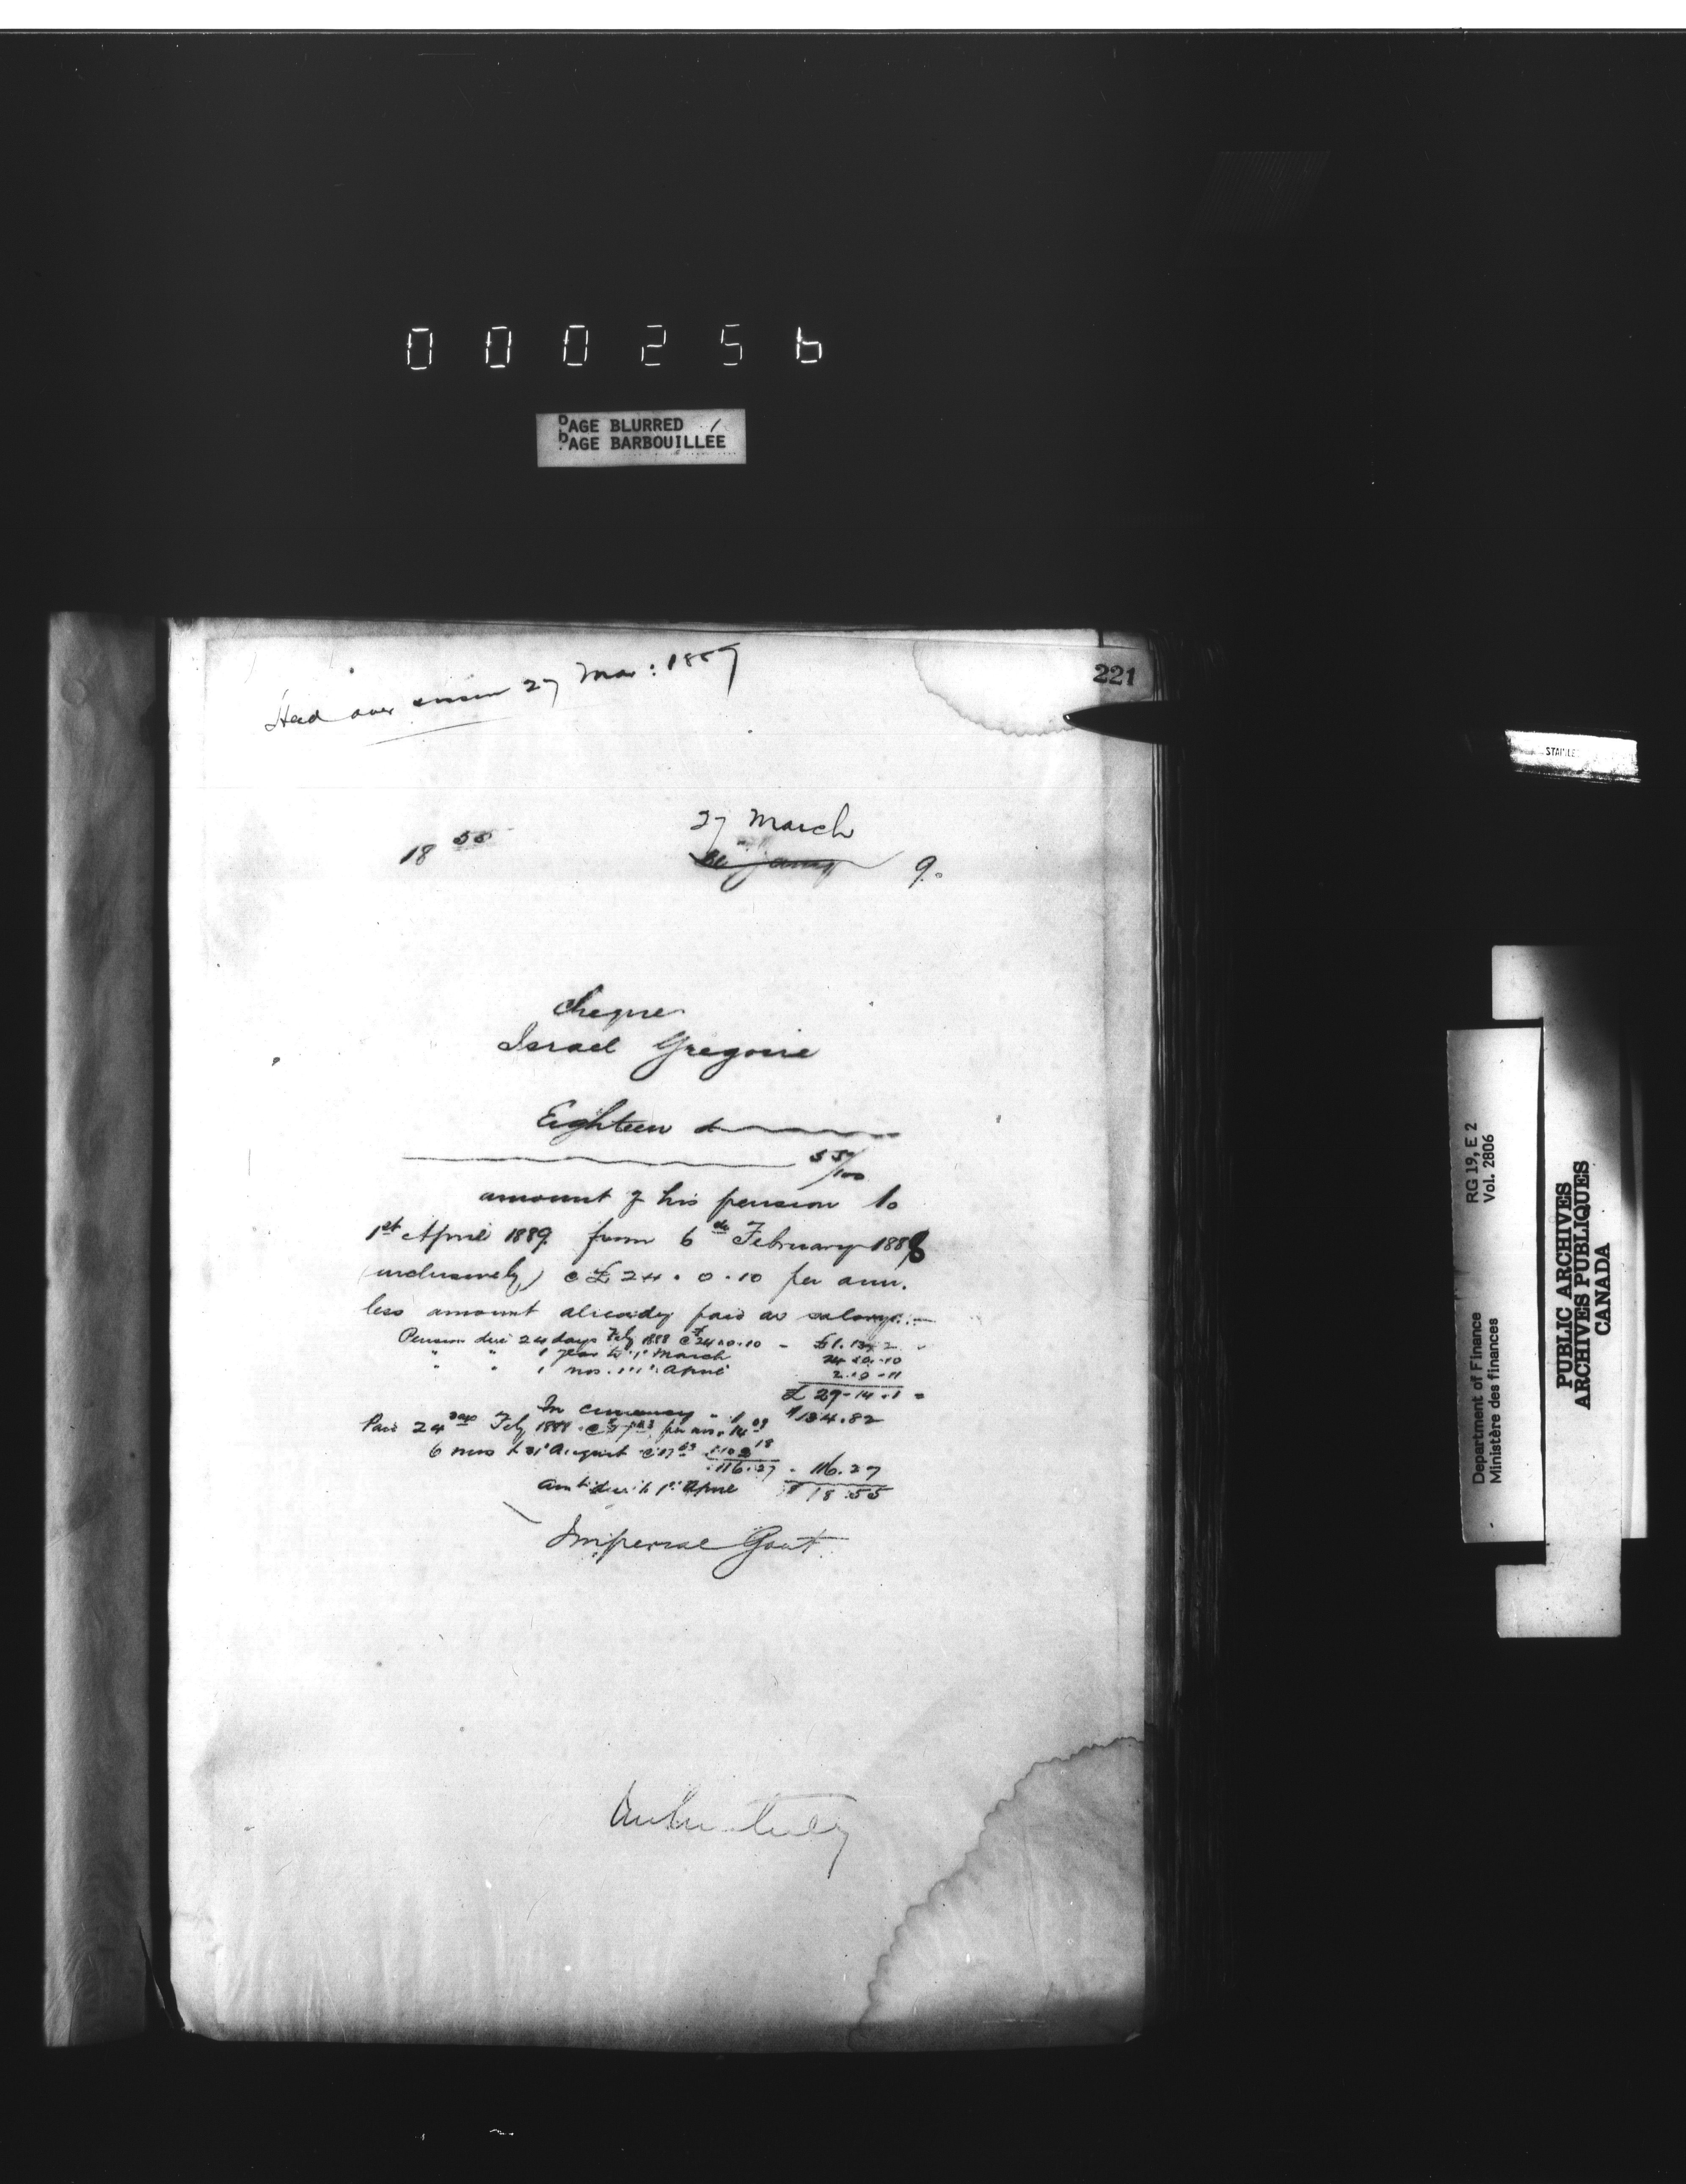 000256
PAGE BLURRED
PAGE BARBOUILLÉE
221
27 Mar: 1889
27 March
18 55
9.
Cheque
Israel Gregoire
Eighteen &
55/100
amount of his pension to
1st April 1889 from 6th February 1888
(inclusively) @ £24.0.10 per ann.
less amount already paid as salary:—
Pension due 24 days Feby 1888 @ £24.0.10 - £1.13.2
" " 1 year to 1st March 24.0.10
" " 1 mos. 1st April
£29-14-1
In currency $134.82
Paid 24 days Feby 1888 per an. 14.09
6 mos to 31st August 102.18
116.27 - 116.27
Amt due to 1st April $18.55
Imperial Govt.
STAINLE
RG 19, E 2
Vol. 2806
Department of Finance
Ministère des finances
PUBLIC ARCHIVES
ARCHIVES PUBLIQUES
CANADA